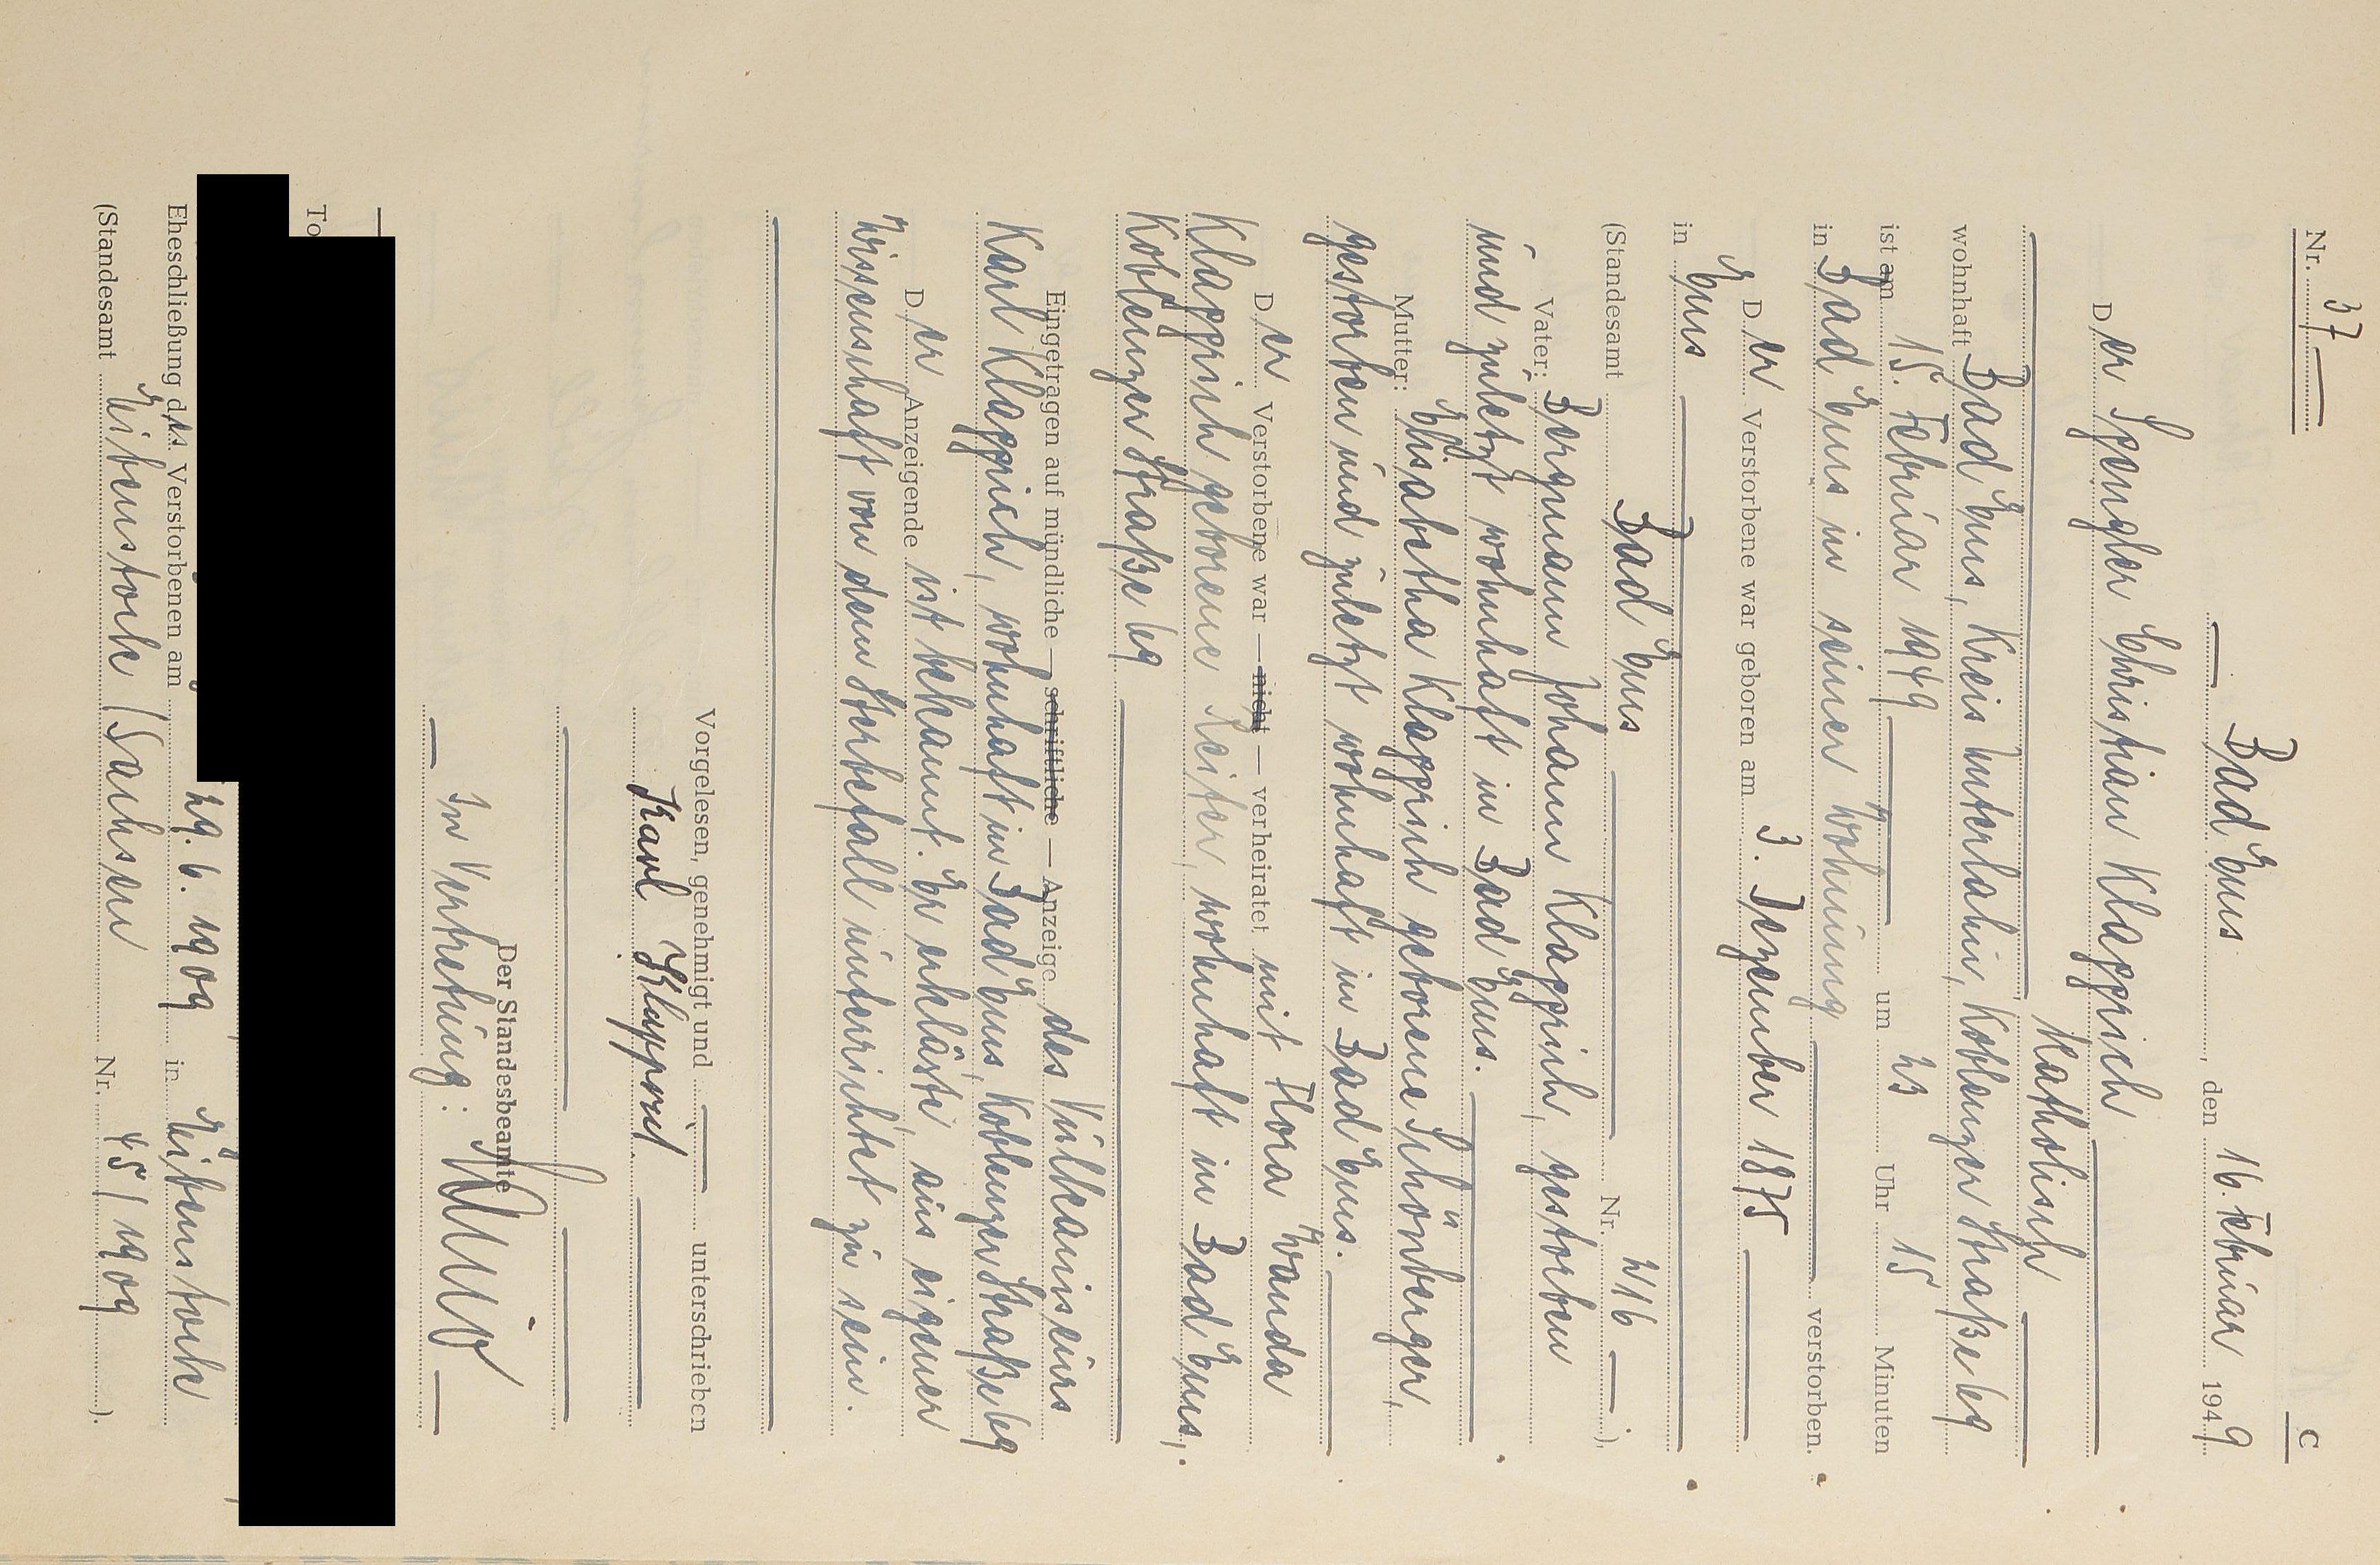 Nr. 37
C
Bad Ems, den 16. Februar 1949
Der Spengler Christian Klapprich
katholisch
wohnhaft Bad Ems, Kreis Unterlahn, Koblenzer Straße 69
ist am 15. Februar 1949 um 23 Uhr 15 Minuten
in Bad Ems in seiner Wohnung verstorben.
Der Verstorbene war geboren am 3. Dezember 1875
in Ems
(Standesamt Bad Ems Nr. 216 ).
Vater: Bergmann Johann Klapprich, gestorben
und zuletzt wohnhaft in Bad Ems.
Mutter: Elisabetha Klapprich geborene Schönberger,
gestorben und zuletzt wohnhaft in Bad Ems.
Der Verstorbene war — nicht — verheiratet mit Flora Wanda
Klapprich geborene Reiter, wohnhaft in Bad Ems,
Koblenzer Straße 69
Eingetragen auf mündliche — schriftliche — Anzeige des Vulkaniseurs
Karl Klapprich, wohnhaft in Bad Ems, Koblenzer Straße 69
Der Anzeigende ist bekannt. Er erklärte, aus eigener
Wissenschaft von dem Sterbefall unterrichtet zu sein.
Vorgelesen, genehmigt und unterschrieben
Karl Klapprich
Der Standesbeamte
In Vertretung:
To
Eheschließung des Verstorbenen am 29. 6. 1909 in Eibenstock
(Standesamt Eibenstock /Sachsen Nr. 45/1909 ).